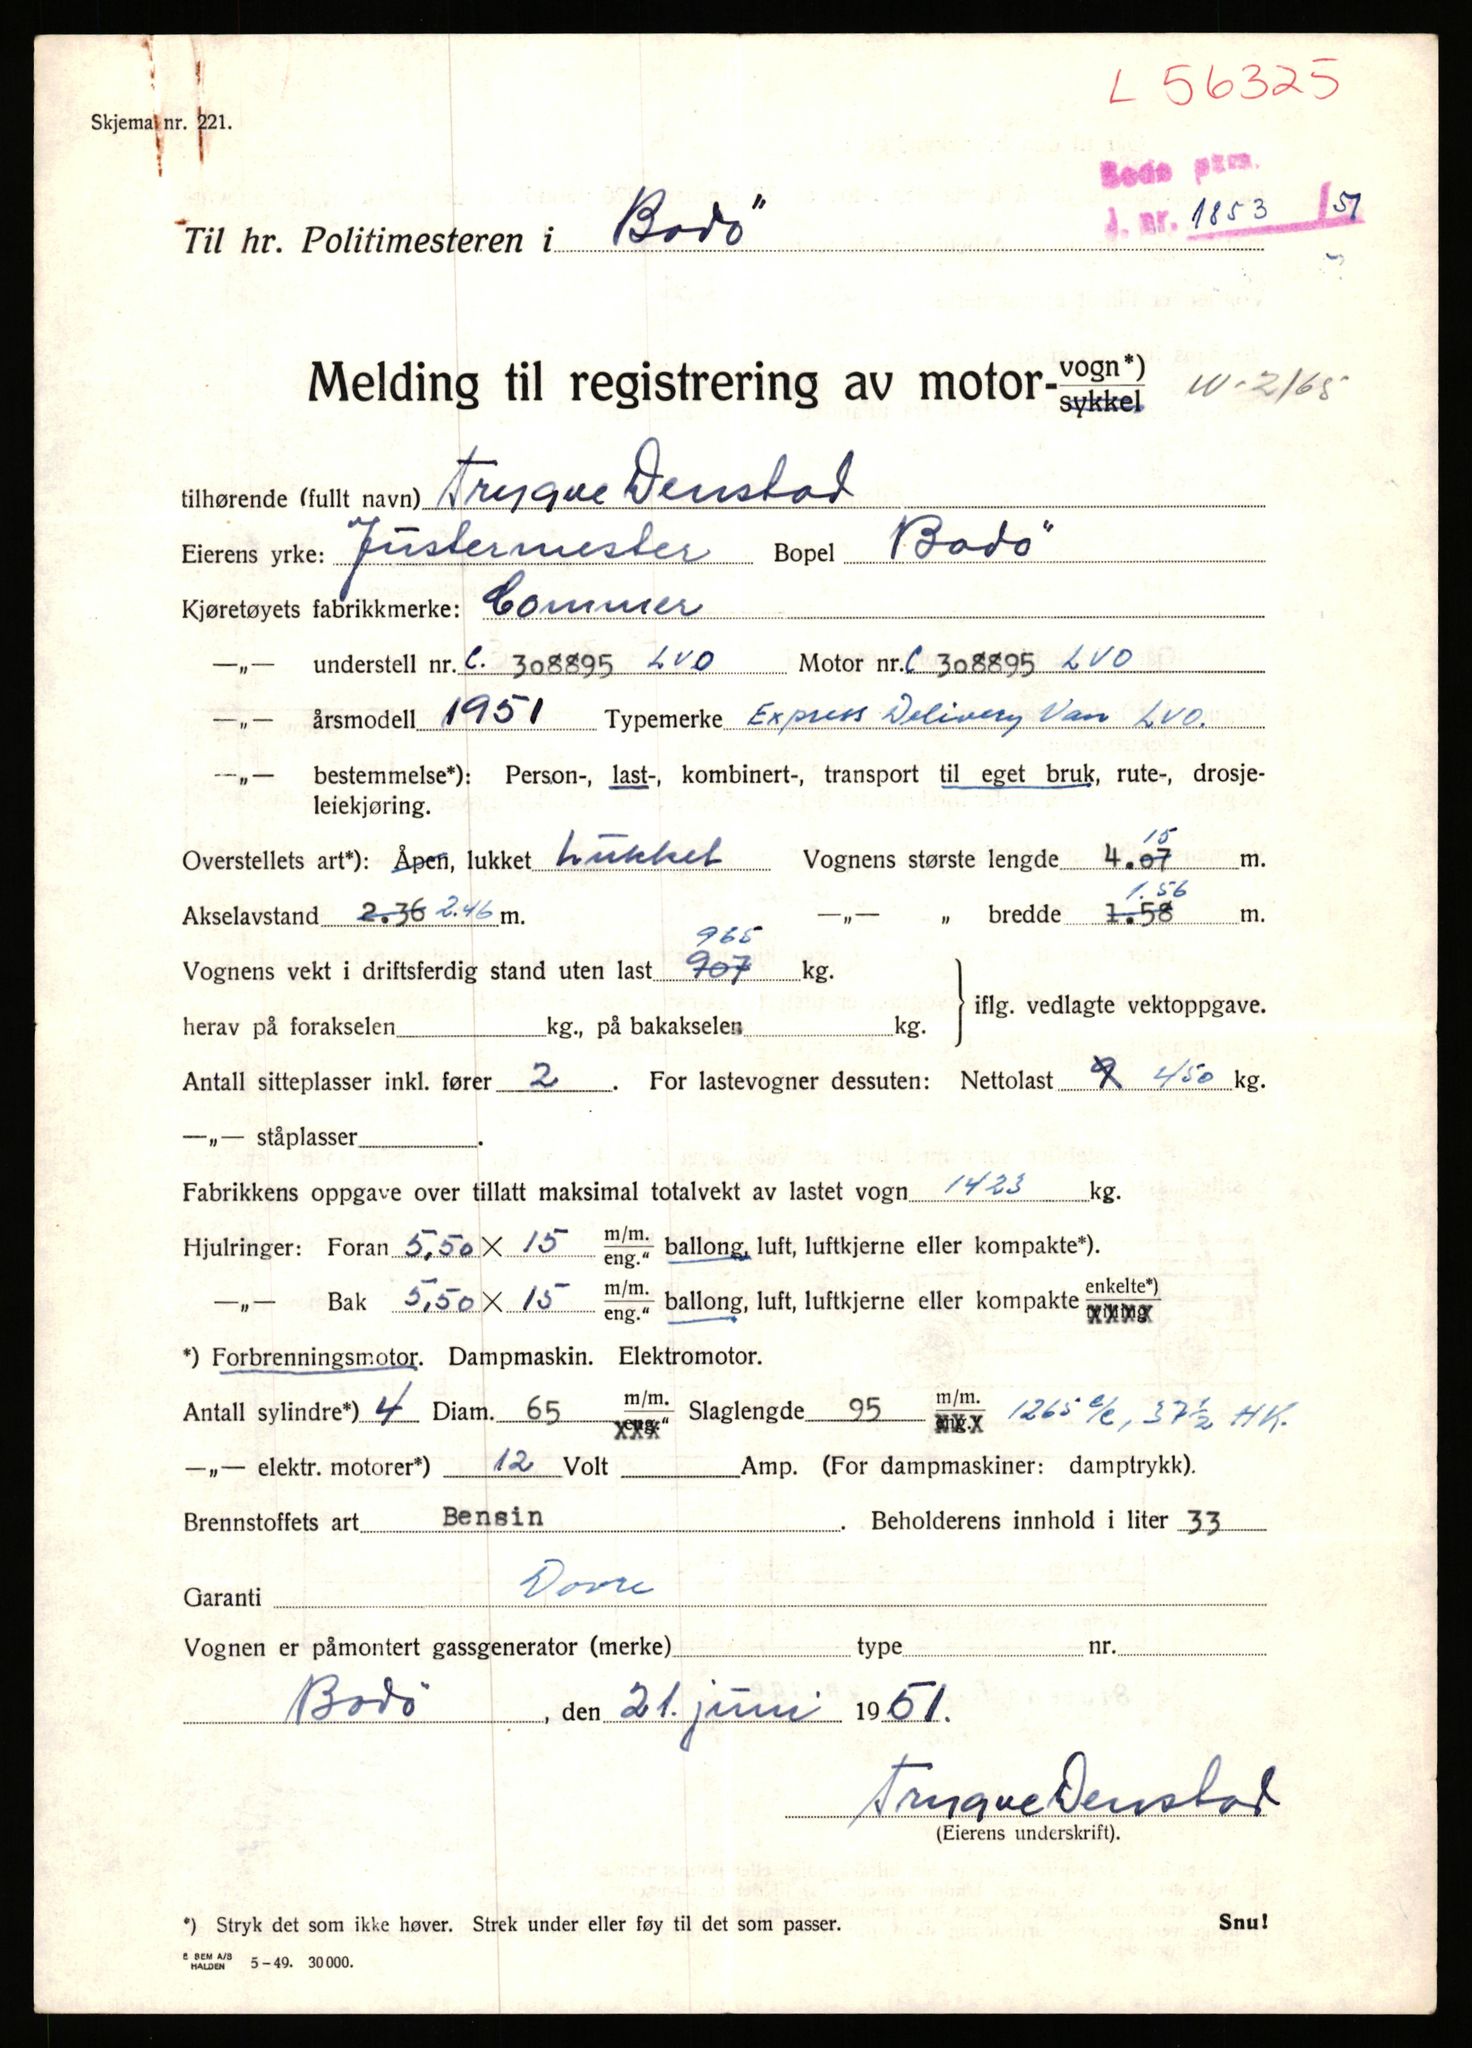 L 56325
Skjema nr. 221.
Bodø pkm.
J. nr. 1853 / 51
Til hr. Politimesteren i Bodö
Melding til registrering av motor- vogn*)
sykkel
W-2/65
tilhørende (fullt navn) Trygve Denstad
Eierens yrke: Justermester Bopel Bodö
Kjøretøyets fabrikkmerke: Commer
—„— understell nr. C. 308895 LVO Motor nr. C 308895 LVO
—„— årsmodell 1951 Typemerke Express Delivery Van LVO.
—„— bestemmelse*): Person-, last-, kombinert-, transport til eget bruk, rute-, drosje-
leiekjøring.
Overstellets art*): Åpen, lukket Lukket Vognens største lengde 4.07 15 m.
Akselavstand 2.36 2.46 m. —„— „ bredde 1.58 1.56 m.
Vognens vekt i driftsferdig stand uten last 907 965 kg.
herav på forakselen kg., på bakakselen kg. } iflg. vedlagte vektoppgave.
Antall sitteplasser inkl. fører 2 . For lastevogner dessuten: Nettolast 450 kg.
—„— ståplasser .
Fabrikkens oppgave over tillatt maksimal totalvekt av lastet vogn 1423 kg.
Hjulringer: Foran 5,50 × 15 m/m. eng.“ ballong, luft, luftkjerne eller kompakte*).
—„— Bak 5,50 × 15 m/m. eng.“ ballong, luft, luftkjerne eller kompakte enkelte*) tvilling
*) Forbrenningsmotor. Dampmaskin. Elektromotor.
Antall sylindre*) 4 Diam. 65 m/m. eng.“ Slaglengde 95 m/m. eng.“ 1265 c/c, 37 1/2 HK.
—„— elektr. motorer*) 12 Volt Amp. (For dampmaskiner: damptrykk).
Brennstoffets art Bensin . Beholderens innhold i liter 33
Garanti Dovre
Vognen er påmontert gassgenerator (merke) type nr.
Bodö , den 21. juni 1951.
Trygve Denstad
(Eierens underskrift).
*) Stryk det som ikke høver. Strek under eller føy til det som passer. Snu!
E SEM A/S
HALDEN 5-49. 30000.